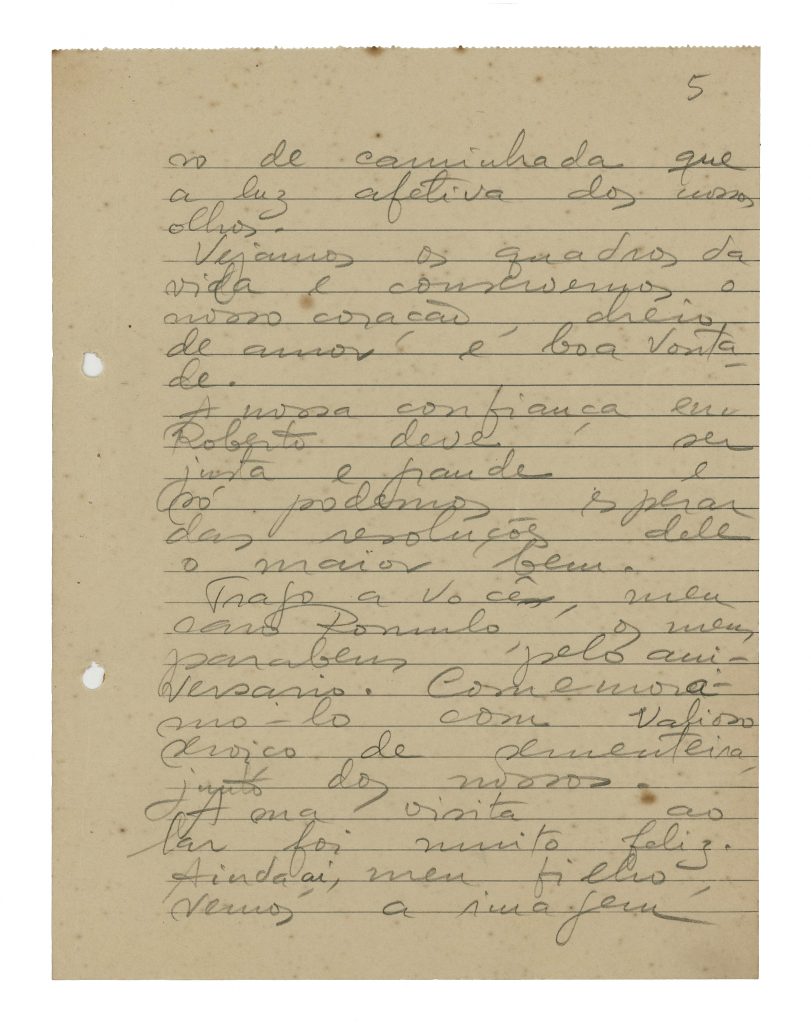 5
ro de caminhada que
a luz afetiva dos nossos
olhos.
Vejamos os quadros da
vida e conservemos o
nosso coração, cheio
de amor e boa vonta-
de.
A nossa confiança em
Roberto deve ser
justa e grande e
só podemos esperar
das resoluções dele
o maior bem.
Trago a você, meu
caro Romulo, os meus
parabens pelo ani-
versario. Comemora-
mo-lo com valioso
serviço de sementeira,
junto dos nossos.
A sua visita ao
lar foi muito feliz.
Ainda aí, meu filho,
vemos a imagem